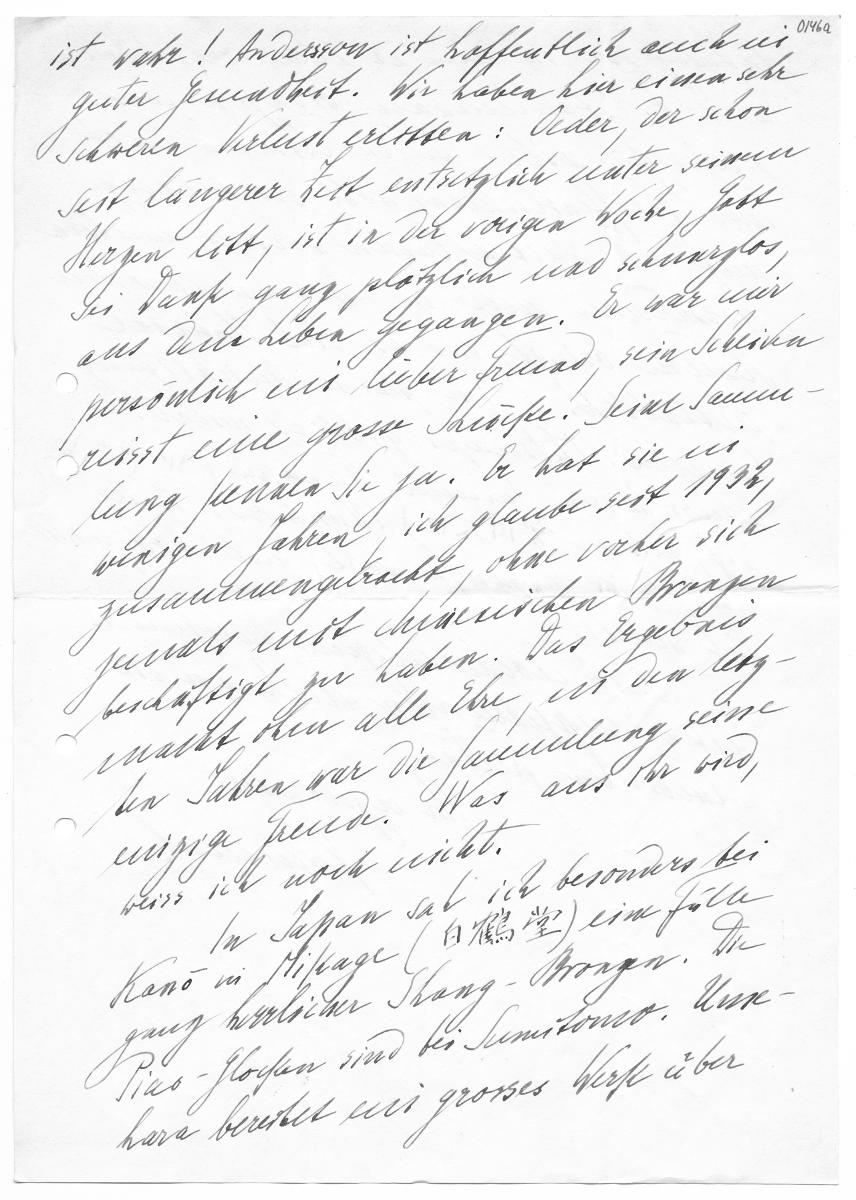 0146a
ist wahr! Andersson ist hoffentlich auch in
guter Gesundheit. Wir haben hier einen sehr
schweren Verlust erlitten: Oeder, der schon
seit längerer Zeit entsetzlich unter seinem
Herzen litt, ist in der vorigen Woche, Gott
sei Dank ganz plötzlich und schmerzlos,
aus dem Leben gegangen. Er war mir
persönlich ein lieber Freund, sein Scheiden
reisst eine grosse Lücke. Seine Samm-
lung kennen Sie ja. Er hat sie in
wenigen Jahren, ich glaube seit 1932,
zusammengebracht, ohne vorher sich
jemals mit chinesischen Bronzen
beschäftigt zu haben. Das Ergebnis
macht ihm alle Ehre, in den letz-
ten Jahren war die Sammlung seine
einzige Freude. Was aus ihr wird,
weiss ich noch nicht.
In Japan sah ich besonders bei
Kanō in Mikage (白鶴堂) eine Fülle
ganz herrlicher Shang-Bronzen. Die
Piao-Glocken sind bei Sumitomo. Ume-
hara bereitet ein grosses Werk über